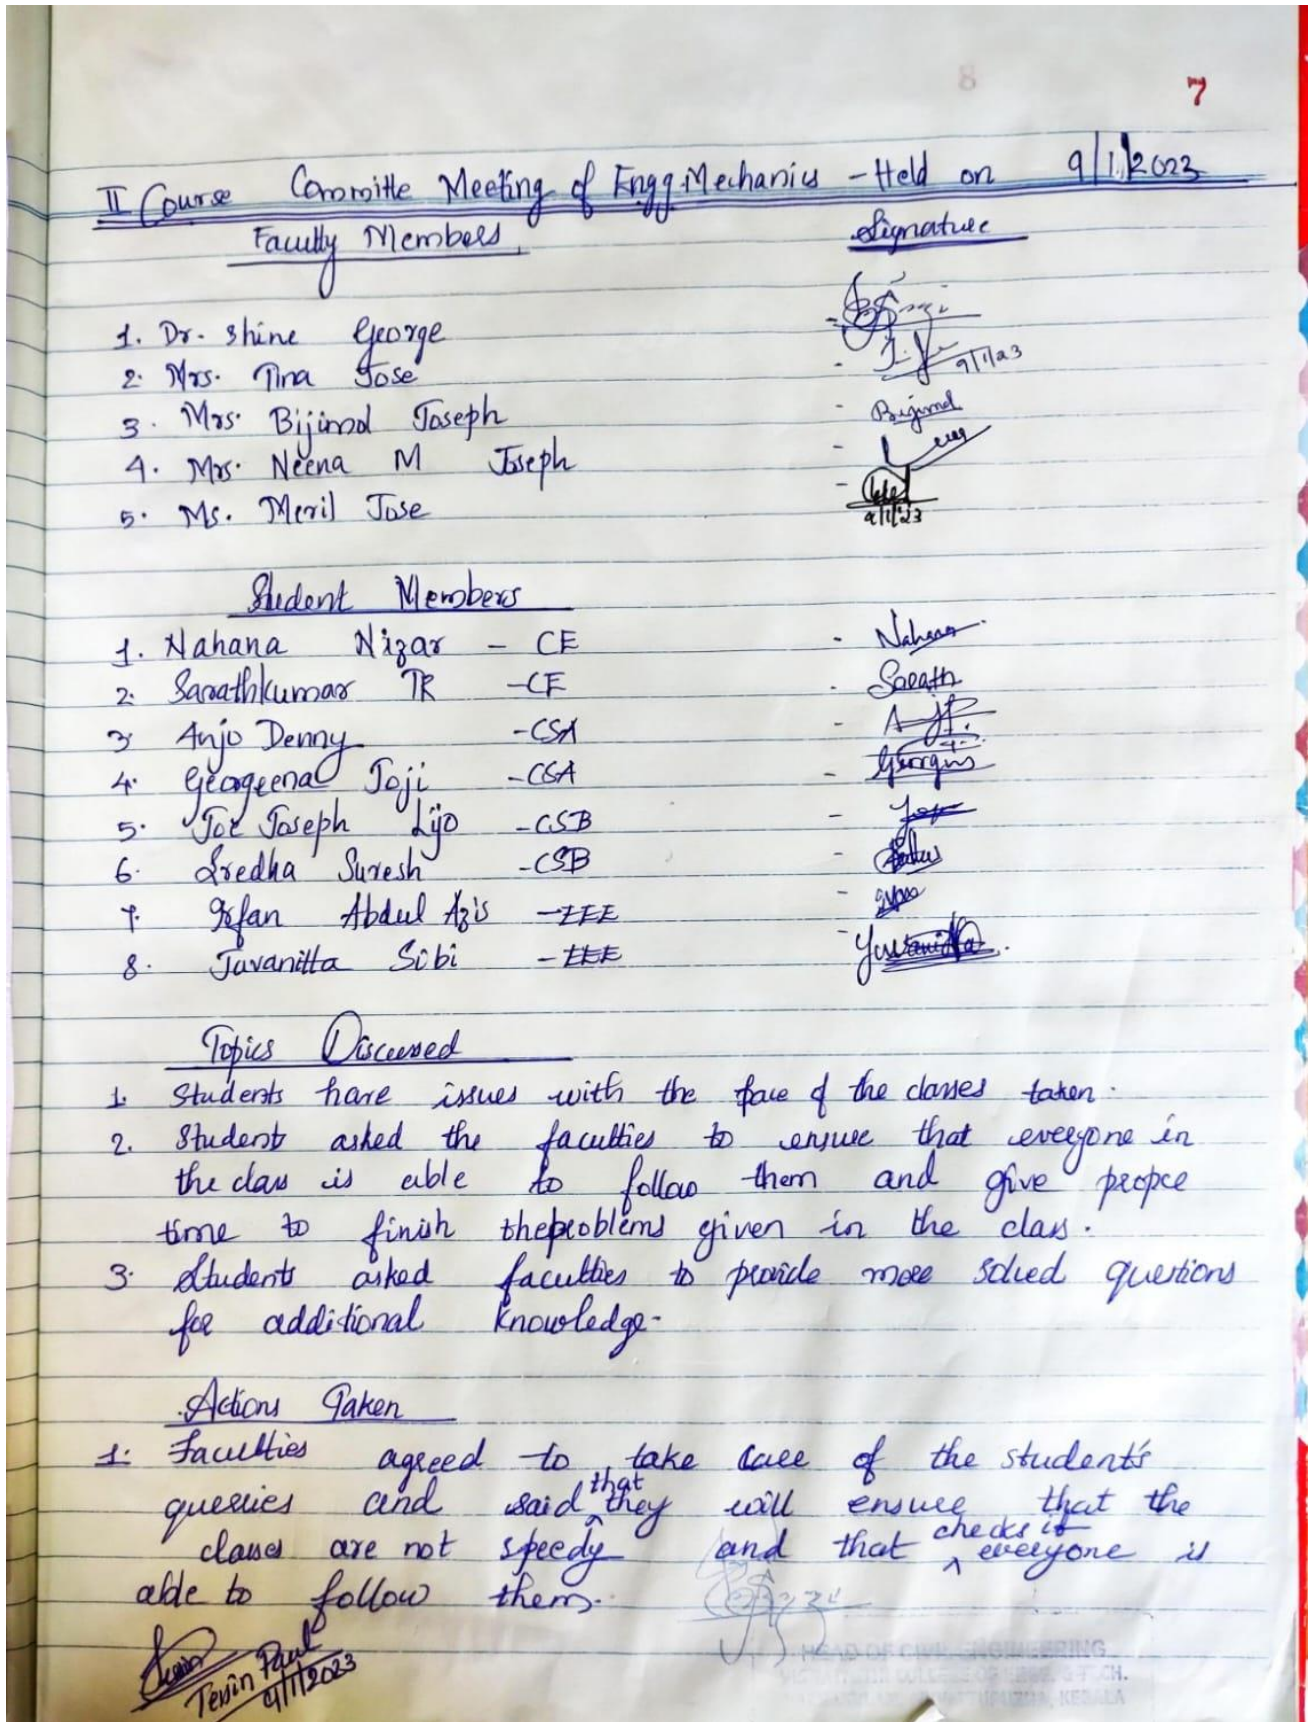 8
7
II Course Committe Meeting of Engg.Mechanics - Held on 9/1/2023
Faculty Members Signature
1. Dr. Shine George
2. Mrs. Tina Jose - 9/1/23
3. Mrs. Bijimol Joseph - Bijimol
4. Mrs. Neena M Joseph -
5. Ms. Meril Jose - 9/1/23
Student Members
1. Nahana Nizar - CE - Nahana
2. Sarathkumar TR - CE - Sarath
3 Anjo Denny - CSA -
4. Georgeena Joji - CSA -
5. Joe Joseph Lijo - CSB -
6. Sredha Suresh - CSB -
7. Irfan Abdul Azis - EEE -
8. Juvanitta Sibi - EEE - Juvanitta
Topics Discussed
1. Students have issues with the pace of the classes taken.
2. Students asked the faculties to ensure that everyone in
the class is able to follow them and give proper
time to finish the problems given in the class.
3. Students asked faculties to provide more solved questions
for additional knowledge.
Actions Taken
1. Faculties agreed to take care of the student's
queries and said that they will ensure that the
classes are not speedy and that checks if everyone is
able to follow them.
Tessin Paul
9/1/2023
HEAD OF CIVIL ENGINEERING